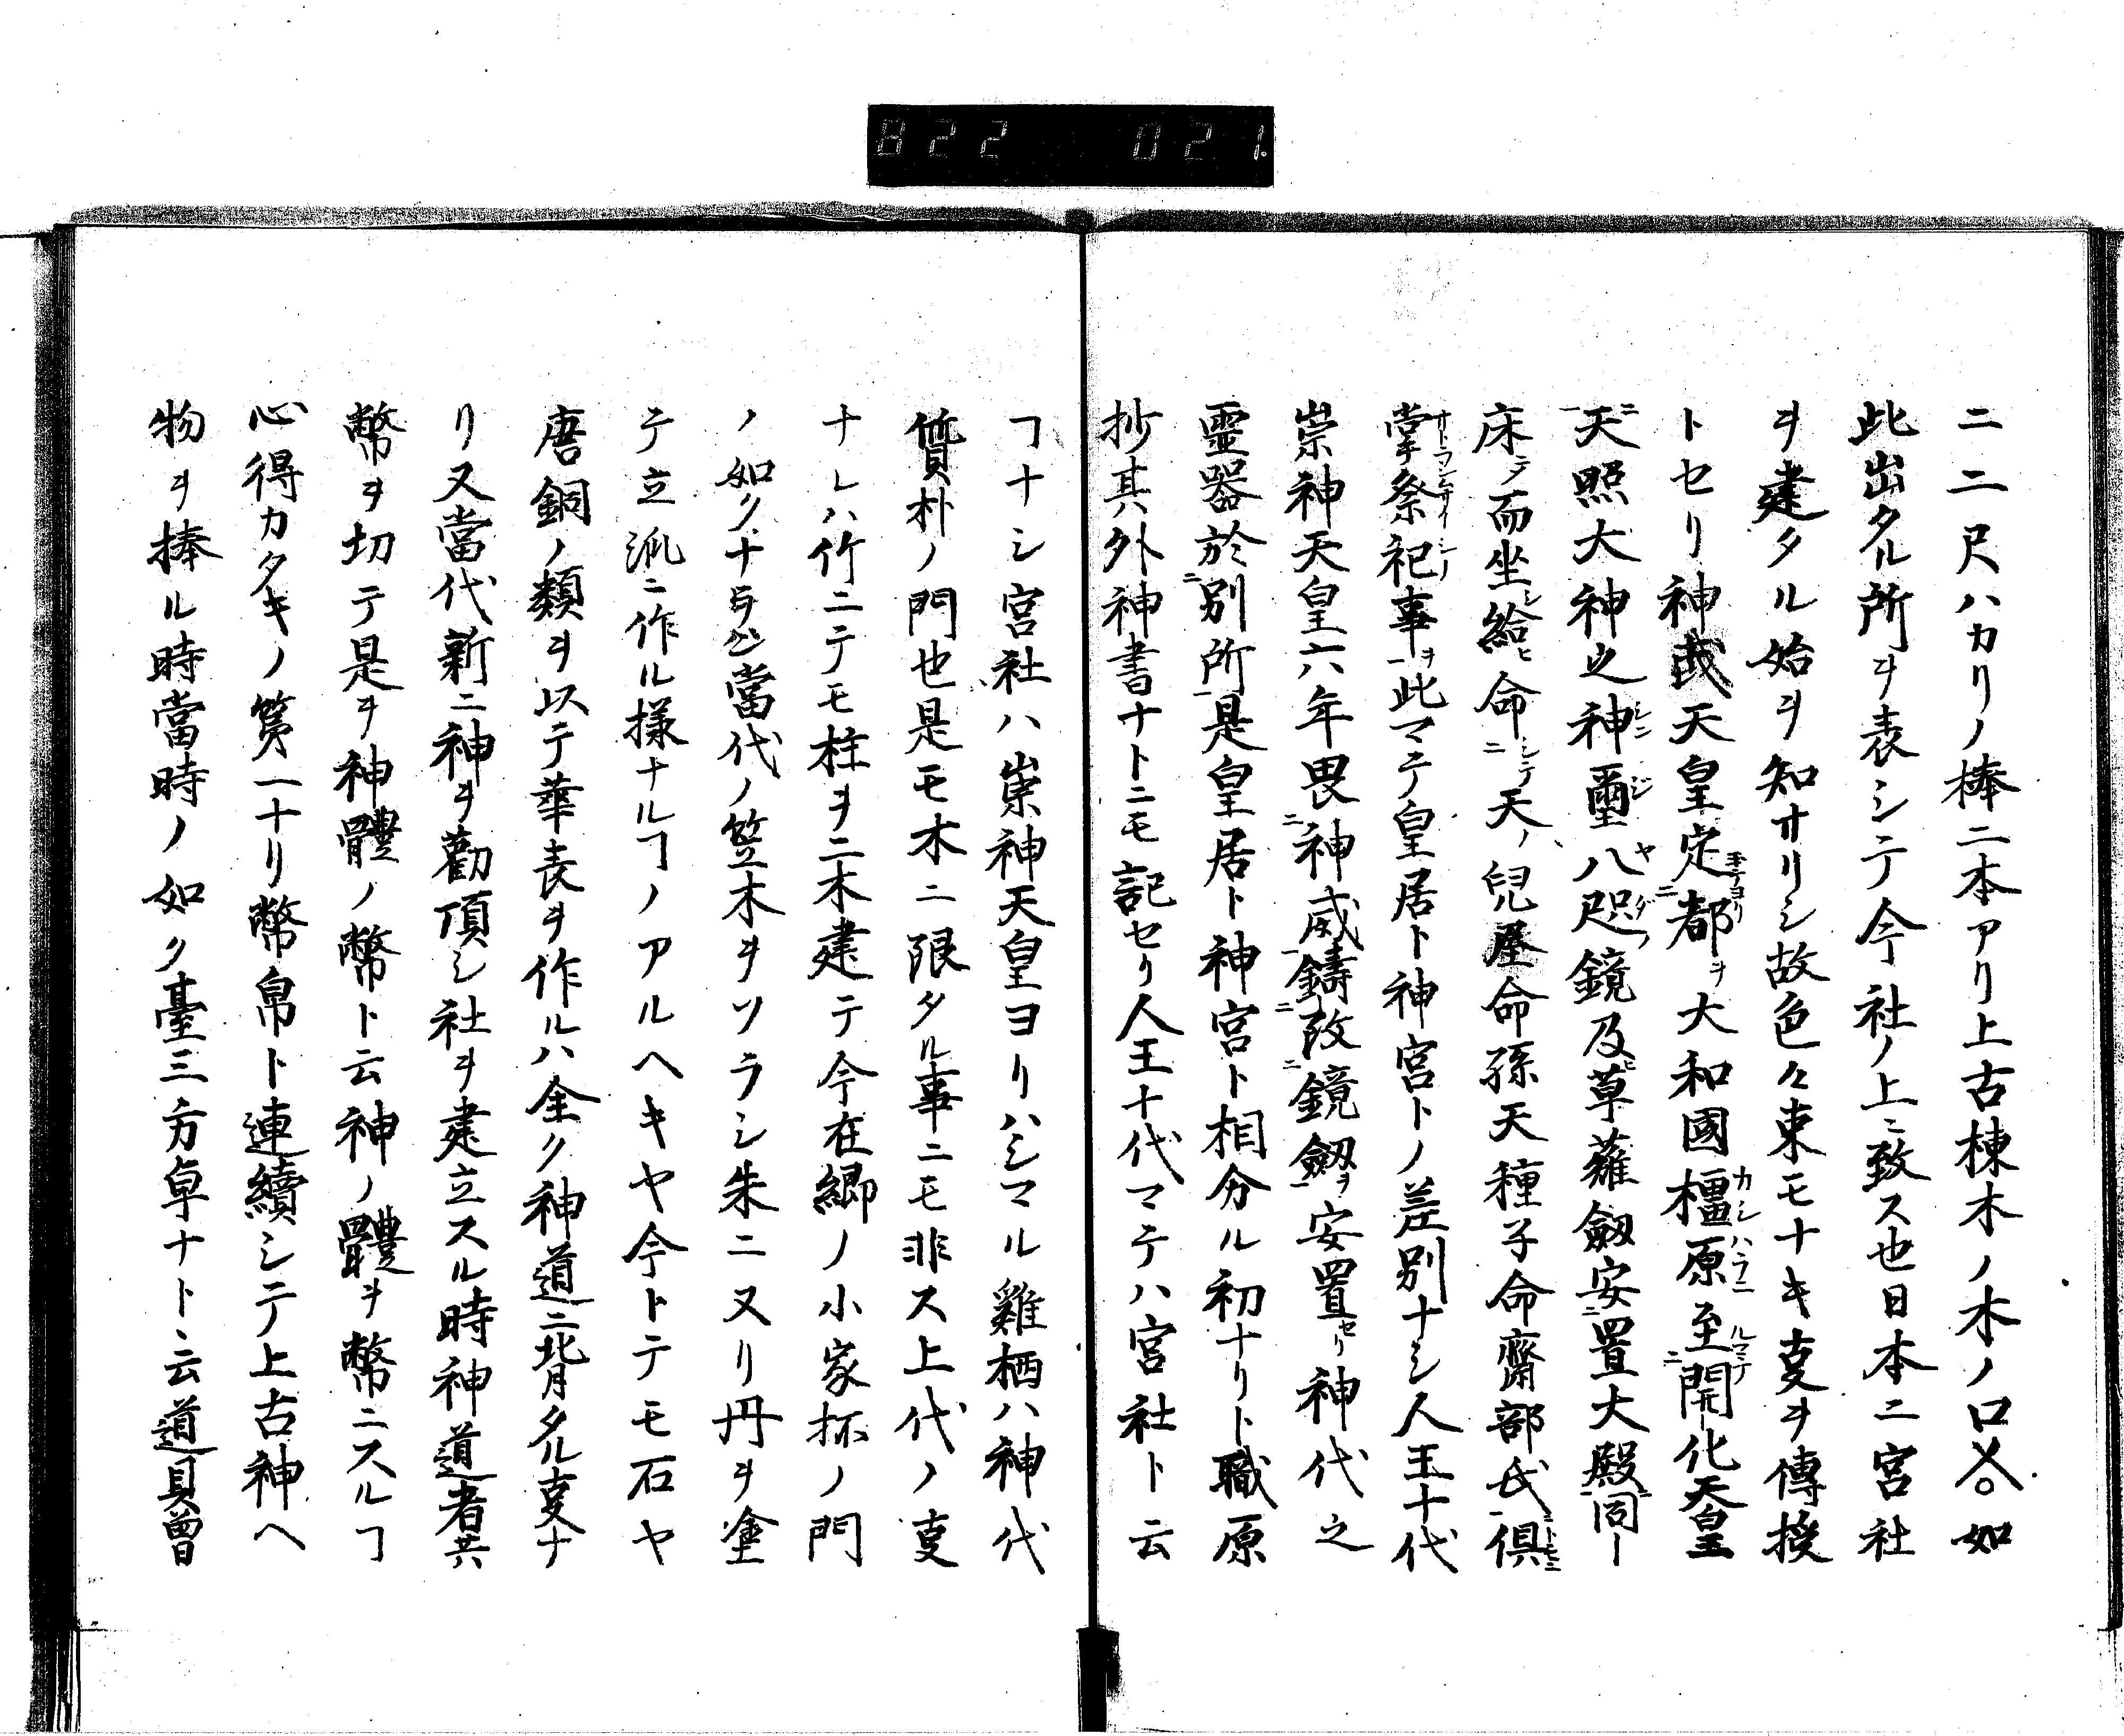 822 021.
ニ二尺ハカリノ棒二本アリ上古棟木ノ木ノ口如
此出タル所ヲ表シテ今社ノ上ニ致ス也日本ニ宮社
ヲ建タル始ヲ知ナリシ故色々束モナキ叓ヲ傳授
トセリ神武天皇定都ヲ大和國橿原至開化天皇
天照大神之神璽八咫鏡及草薙劔安置大殿同ー
床テ而坐シ給ヒ命シテ天ノ兒屋命孫天種子命齋部氏俱
掌祭祀事ヲ此マテ皇居ト神宮トノ差別ナシ人王十代
崇神天皇六年畏神威鑄改鏡劔ヲ安置セリ神代之
霊器於別所是皇居ト神宮ト相分ル初ナリト職原
抄其外神書ナトニモ記セリ人王十代マテハ宮社ト云
ヿナシ宮社ハ崇神天皇ヨリハシマル雞栖ハ神代
質朴ノ門也是モ木ニ限タル事ニモ非ス上代ノ叓
ナレハ竹ニテモ柱ヲ二木建テ今在郷ノ小家抔ノ門
ノ如クナラン當代ノ笠木ヲソラシ朱ニヌリ丹ヲ塗
テ立派ニ作ル様ナルヿノアルヘキヤ今トテモ石ヤ
唐銅ノ類ヲ以テ華表ヲ作ルハ全ク神道ニ背タル叓ナ
リ又當代新ニ神ヲ勸頂シ社ヲ建立スル時神道者共
幣ヲ切テ是ヲ神體ノ幣ト云神ノ體ヲ幣ニスルヿ
心得カタキノ第一ナリ幣帛ト連續シテ上古神ヘ
物ヲ捧ル時當時ノ如ク臺三方卓ナト云道具曽